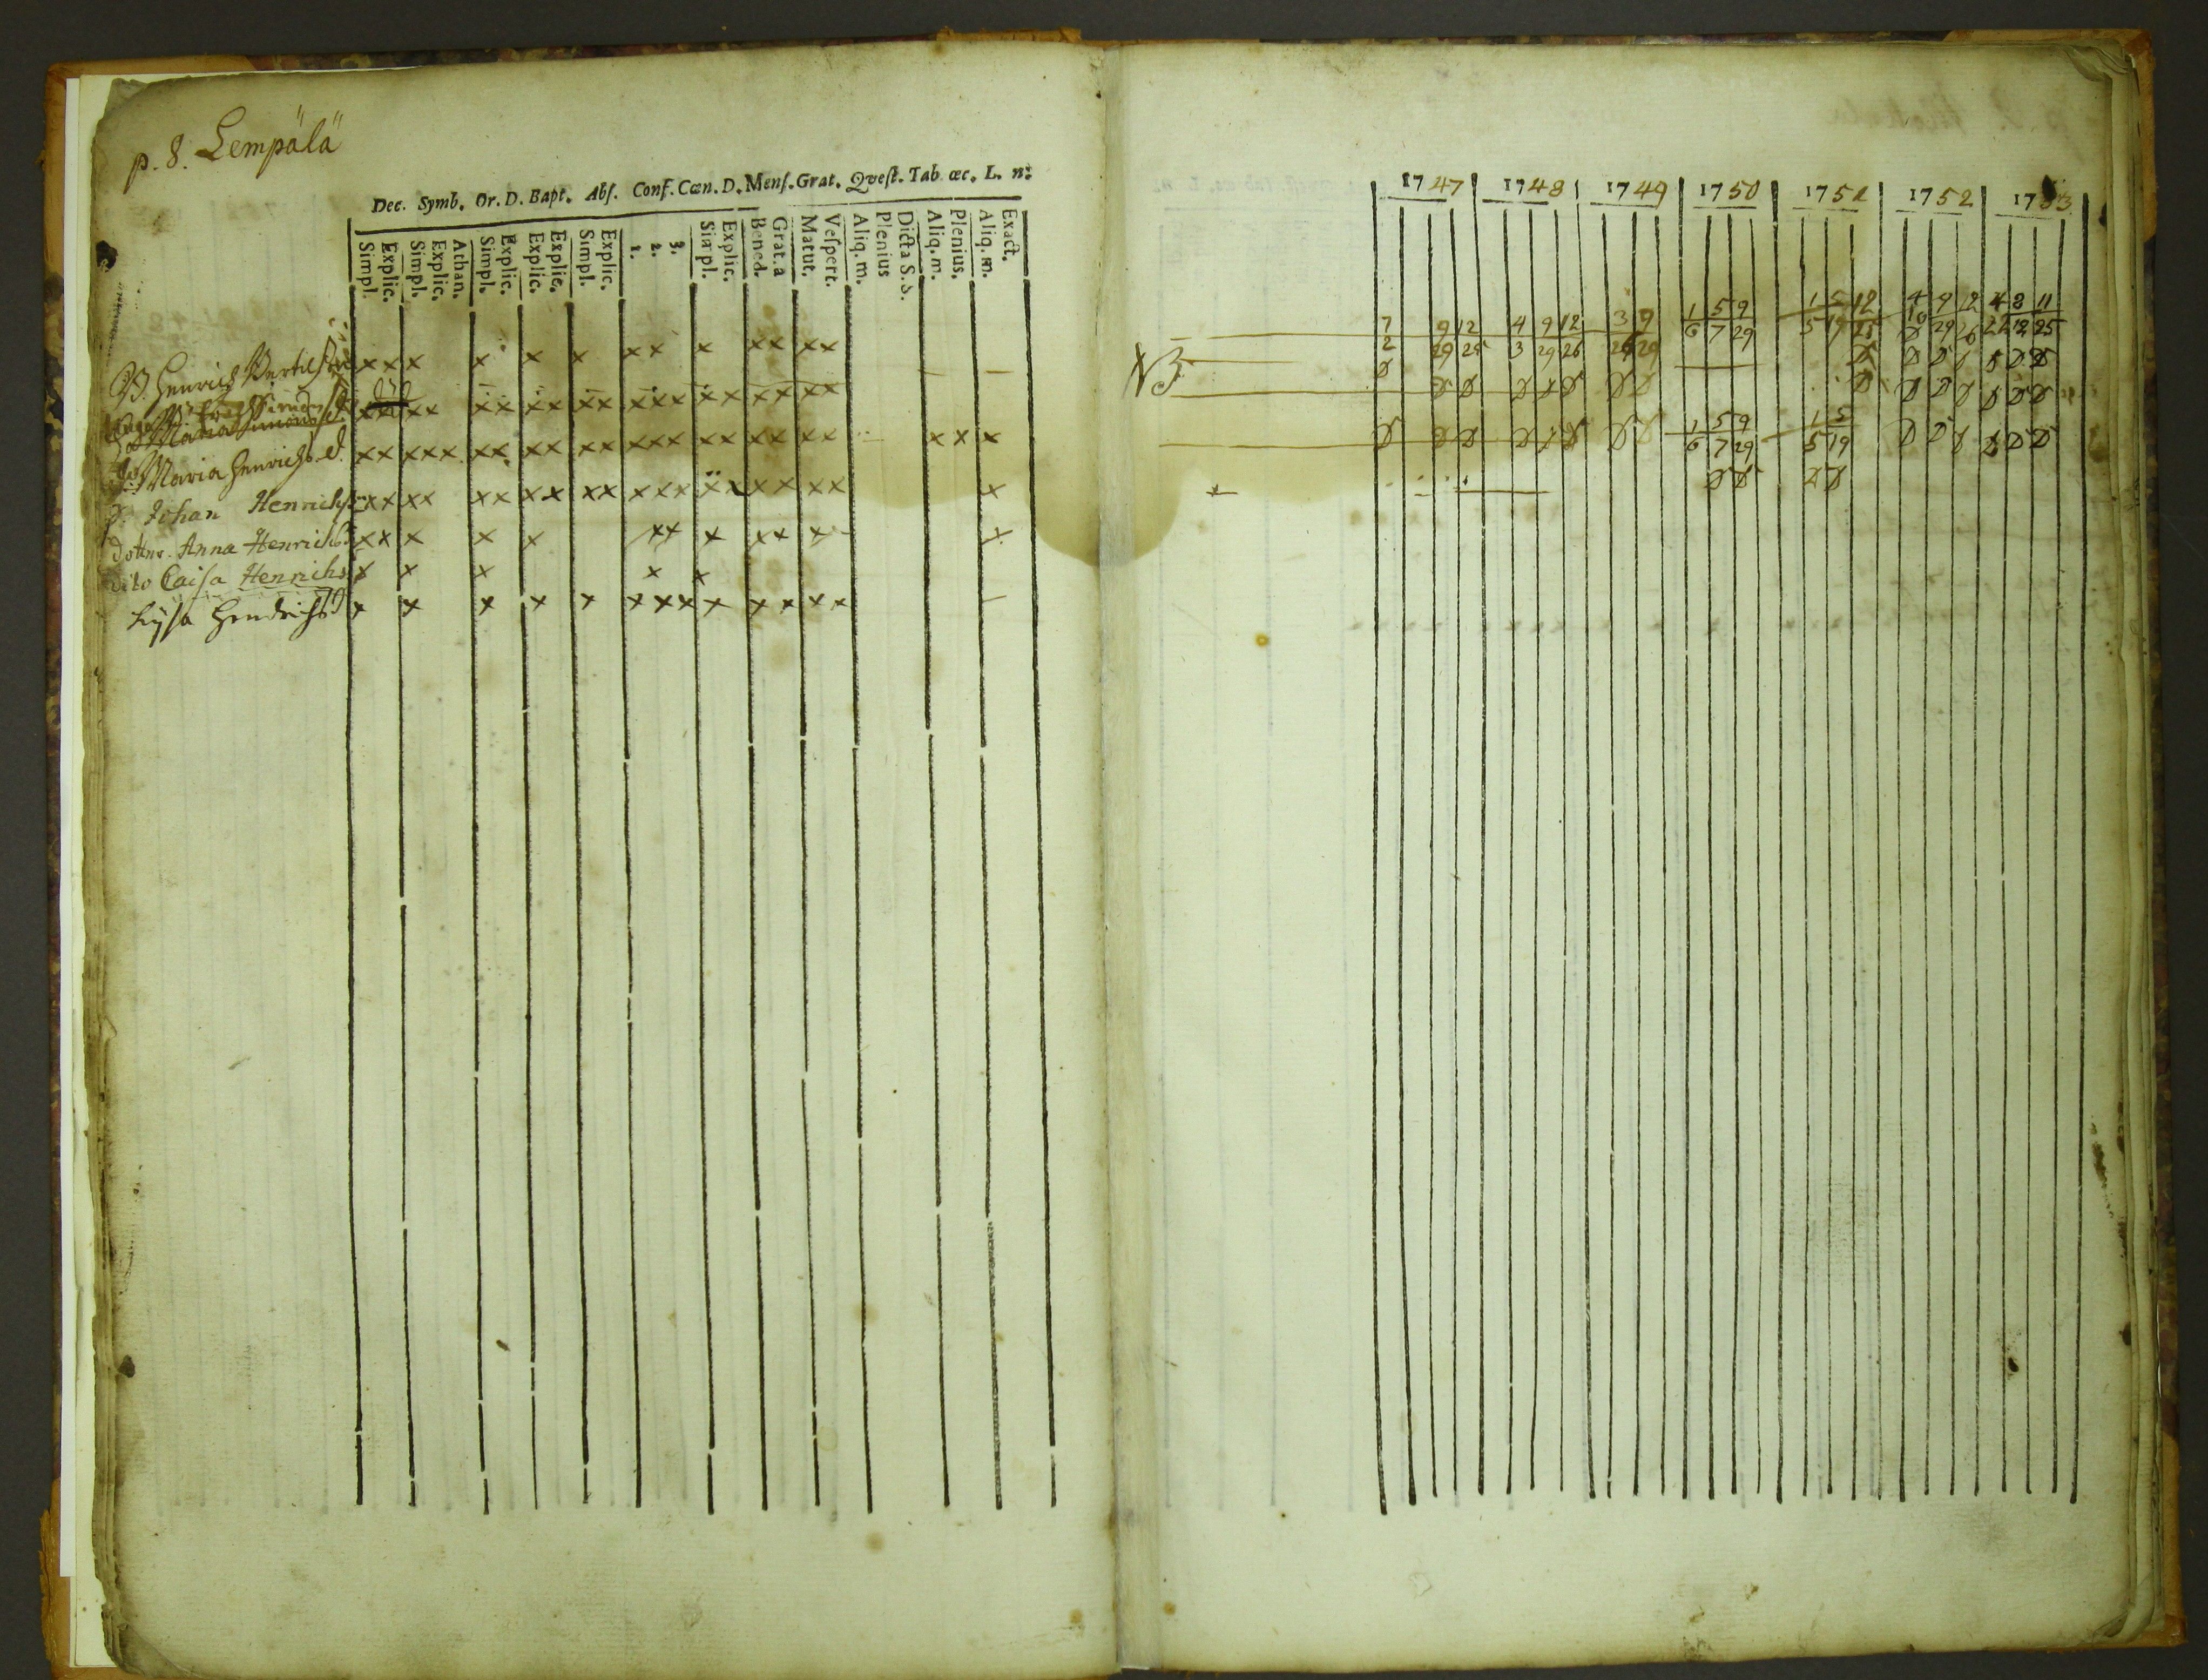 p. 8. Lempälä
Dec. Symb. Or. D. Bapt. Abſ. Conf. Cœn. D. Menſ. Grat. Qveſt. Tab. œc. L. n:
Simpl. Explic. Simpl. Explic. Athan. Simpl. Explic. Explic. Explic. Simpl. Explic. 1. 2. 3. Simpl. Explic. Bened. Grat. a Matut. Veſpert. Aliq. m. Plenius Dicta S. S. Aliq. m. Plenius. Aliq. m. Exact.
B. Henrich Bertilſſon x x x x x x x x x x x x x
Maria Simonsd. x x x x x x x x x x x x x x x x x x x
Maria Henrichsd. x x x x x x x x x x x x x x x x x x x x x x x
Johan Henrichs x x x x x x x x x x x x x x x x x x x x
dottr. Anna Henrichs x x x x x x x x x x x x
dito Caisa Henrichs x x x x x
Lijsa Hendrichsd x x x x x x x x x x x x x
1747 1748 1749 1750 1751 1752 1753
7 9 12 4 9 12 3 9 1 5 9 1 5 12 4 9 12 4 8 11
2 29 25 3 29 26 29 6 7 29 5 19 25 29 26 22 12 25
NB
1 5 9 1 5
6 7 29 5 19